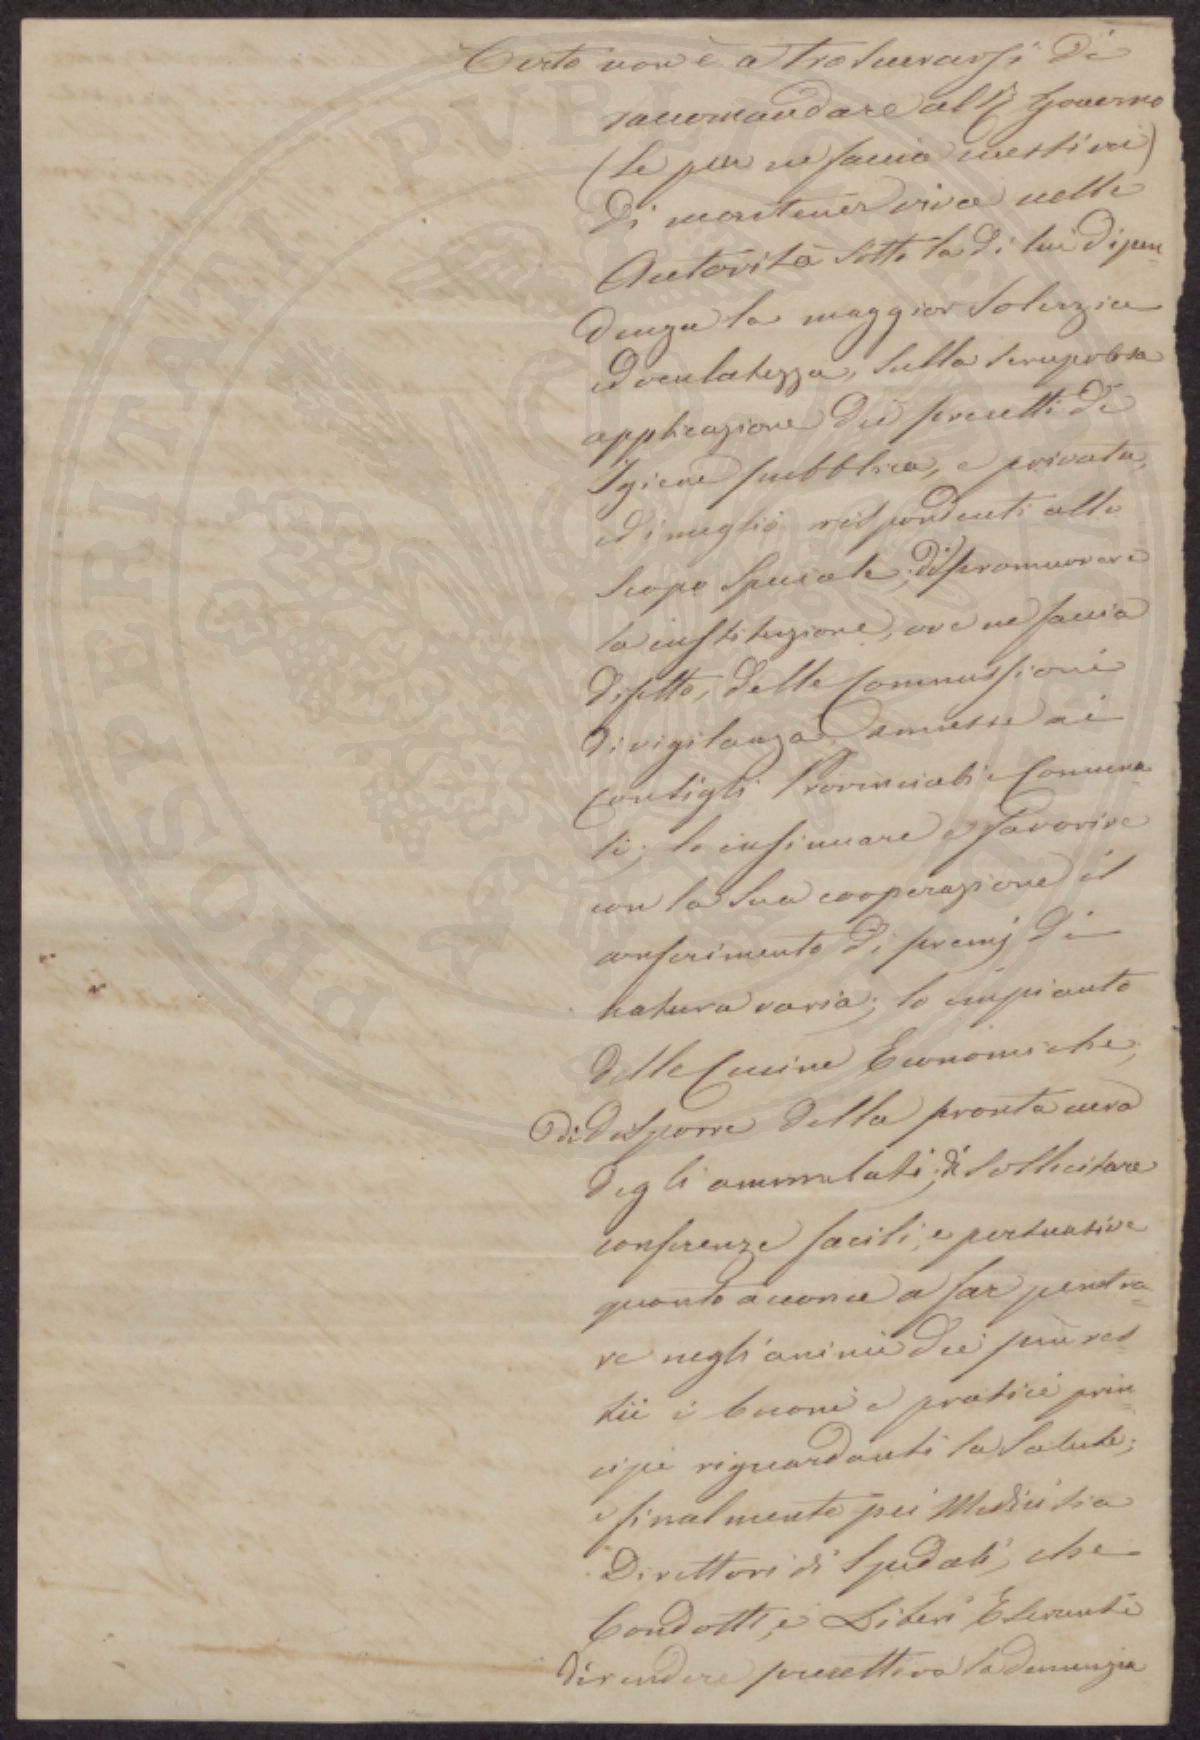 Certo non è a trascurarsi di
raccomandare al R. Governo
(se pur ne faccia mestieri)
di mantener viva nelle
Autorità sotto la di lui dipen=
denza la maggior solerzia
ed oculatezza, sulla scrupolosa
applicazione dei precetti di
Igiene pubblica, e privata,
ed i meglio rispondenti allo
scopo speciale; di promuovere
la instituzione, ove ne faccia
difetto, delle Commissioni
di vigilanza, ammesse ai
Consigli Provinciali e Comuna=
li; lo insinuare e favorire
con la sua cooperazione il
conferimento di premj di
natura varia; lo impianto
delle Cucine Economiche;
di disporre della pronta cura
degli ammalati; di sollecitare
conferenze facili, e persuasive
quanto acconce a far penetra=
re negli animi dei più res=
tii i buoni e pratici prin=
cipi riguardanti la salute;
e finalmente pei Medici sia
Direttori di Spedali, che
Condotti, e Liberi Esercenti
di rendere precettiva la denunzia
PROSPERITATI PVBLICAE